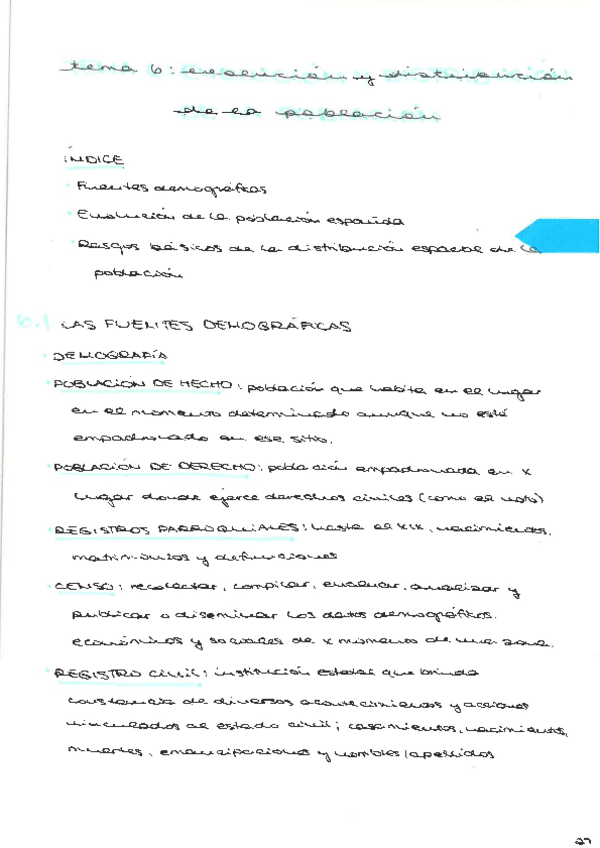 tema 6: evolución y distribución
de la población
ÍNDICE
· Fuentes demográficas
· Evolución de la población española
· Rasgos básicos de la distribución espacial de la
población
6.1 LAS FUENTES DEMOGRÁFICAS
· DEMOGRAFÍA
· POBLACIÓN DE HECHO: población que habita en el lugar
en el momento determinado aunque no esté
empadronado en ese sitio.
· POBLACIÓN DE DERECHO: población empadronada en x
lugar donde ejerce derechos civiles (como el voto)
· REGISTROS PARROQUIALES: hasta el XIX, nacimientos,
matrimonios y defunciones
· CENSO: recolectar, compilar, evaluar, analizar y
publicar o diseminar los datos demográficos,
económicos y sociales de x momento de una zona.
· REGISTRO CIVIL: institución estatal que brinda
constancia de diversos acontecimientos y acciones
vinculados al estado civil; casamientos, nacimientos,
muertes, emancipaciones y nombles/apellidos
27